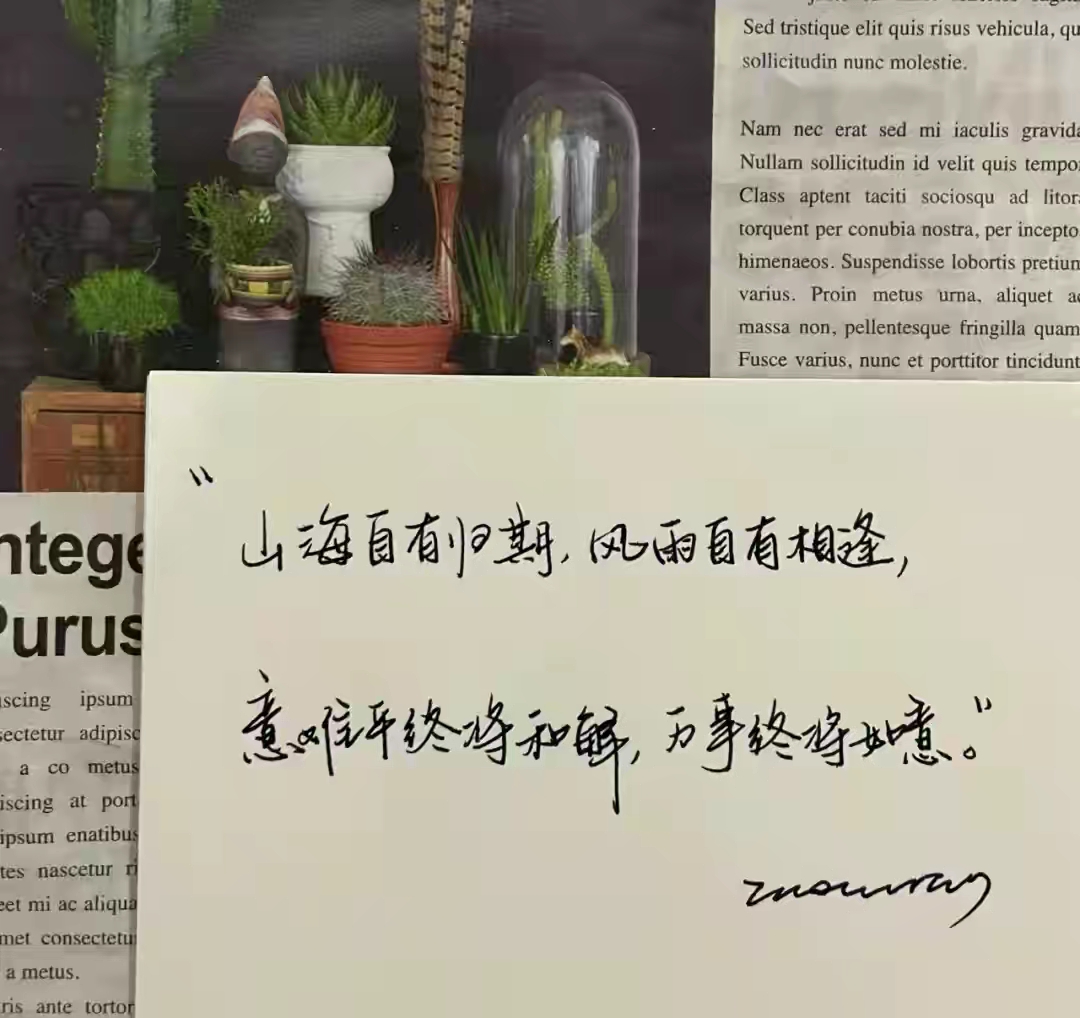 Sed tristique elit quis risus vehicula, qu
sollicitudin nunc molestie.
Nam nec erat sed mi iaculis gravida
Nullam sollicitudin id velit quis tempo
Class aptent taciti sociosqu ad litor
torquent per conubia nostra, per incepto
himenaeos. Suspendisse lobortis pretium
varius. Proin metus urna, aliquet ac
massa non, pellentesque fringilla quam
Fusce varius, nunc et porttitor tincidunt
ntege
Purus
scing ipsum
sectetur adipisc
a co metus
iscing at port
ipsum enatibus
tes nascetur ri
eet mi ac aliqua
met consectetu
a metus.
ris ante tortor
"山海自有归期,风雨自有相逢,
意难平终将和解,万事终将如意。"